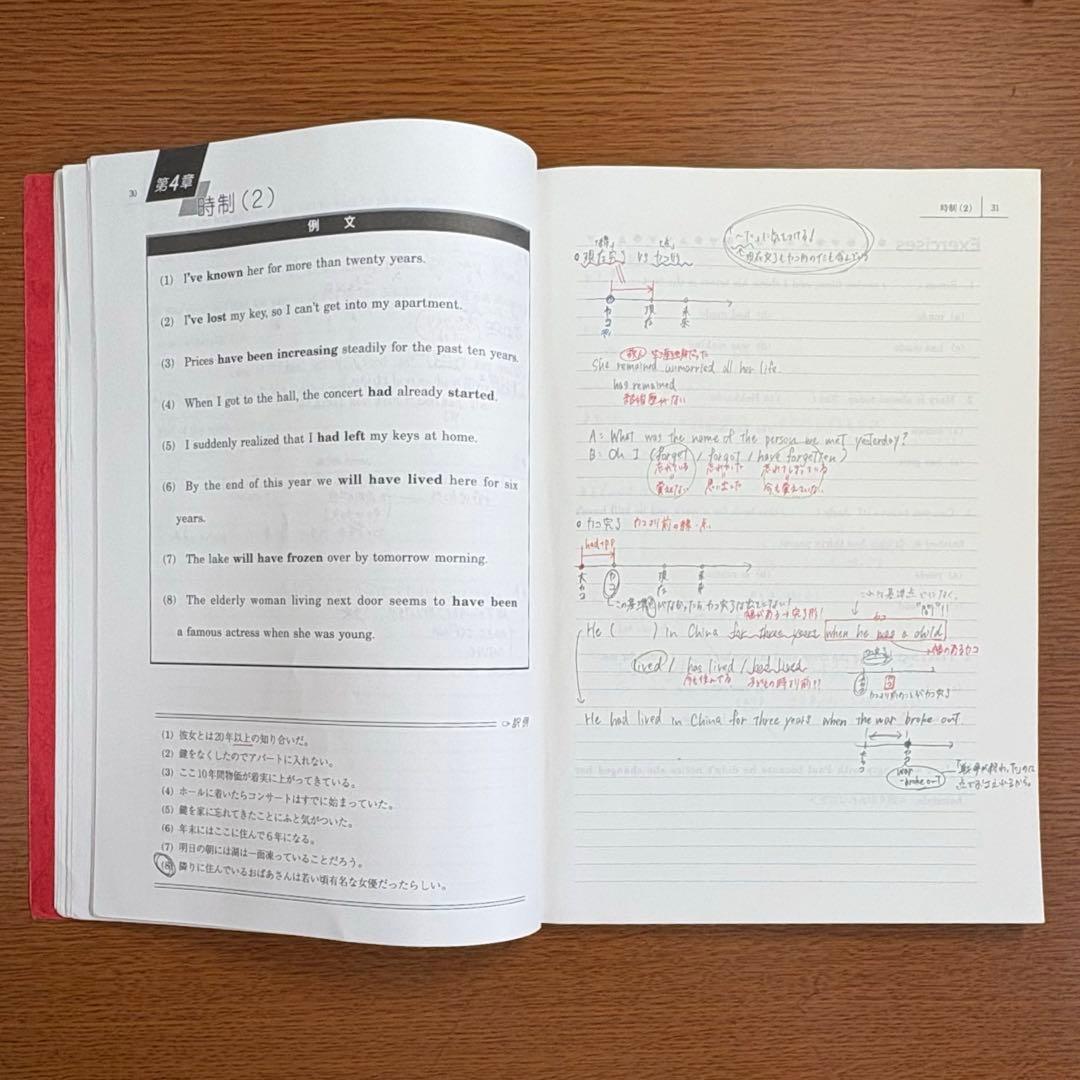 30
第4章
時制(2)
例 文
(1) I've known her for more than twenty years.
(2) I've lost my key, so I can't get into my apartment.
(3) Prices have been increasing steadily for the past ten years.
(4) When I got to the hall, the concert had already started.
(5) I suddenly realized that I had left my keys at home.
(6) By the end of this year we will have lived here for six
years.
(7) The lake will have frozen over by tomorrow morning.
(8) The elderly woman living next door seems to have been
a famous actress when she was young.
☞訳例
(1) 彼女とは20年以上の知り合いだ。
(2) 鍵をなくしたのでアパートに入れない。
(3) ここ10年間物価が着実に上がってきている。
(4) ホールに着いたらコンサートはすでに始まっていた。
(5) 鍵を家に忘れてきたことにふと気がついた。
(6) 年末にはここに住んで6年になる。
(7) 明日の朝には湖は一面凍っていることだろう。
(8) 隣りに住んでいるおばあさんは若い頃有名な女優だったらしい。
時制(2) 31
現在完了 vs カコ形
She remained unmarried all her life.
has remained
A: What was the name of the person we met yesterday?
B: Oh I (forget / forgot / have forgotten)
忘れている
覚えてない 思い出した 今も覚えていない
カコ完了 カコより前の線・点
had+pp
He ( ) in China for three years when he was a child
lived / has lived / had lived
今も住んでる 子どもの時より前!?
He had lived in China for three years when the war broke out.
war broke out